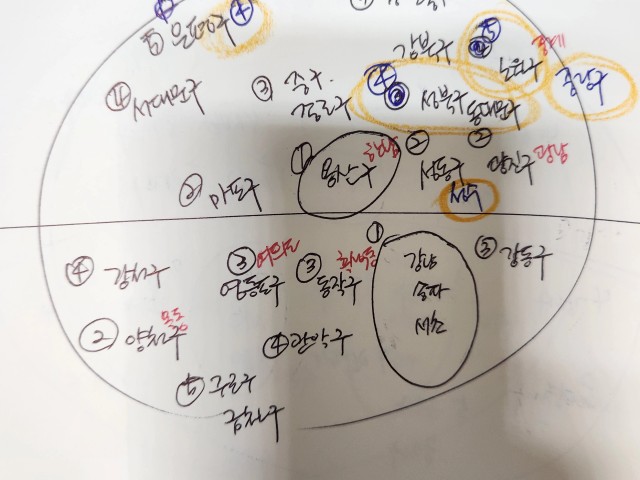 ⑤ 은평구 ④
강북구
⑤
노원구
중랑구
④ 서대문구
③ 중구
종로구
④
③ 성북구
동대문구
① 용산구 한남
② 성동구
성수
② 광진구 광남
② 마포구
④ 강서구
③ 여의도
영등포구
③ 흑석동
동작구
①
강남
송파
서초
③ 강동구
② 양천구 목동
④ 관악구
⑤ 구로구
금천구